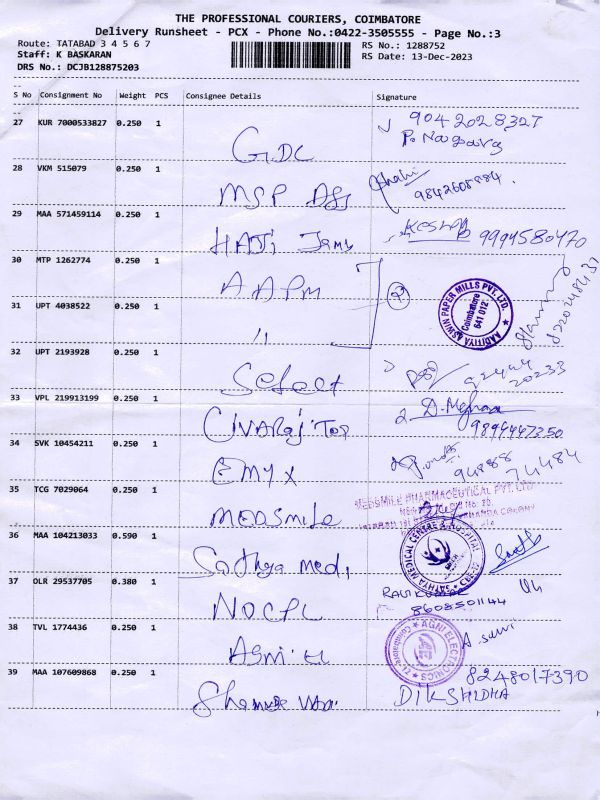 THE PROFESSIONAL COURIERS, COIMBATORE
Delivery Runsheet - PCX - Phone No.:0422-3505555 - Page No.:3
Route: TATABAD 3 4 5 6 7
RS No.: 1288752
Staff: K BASKARAN
RS Date: 13-Dec-2023
DRS No.: DCJB128875203
S No Consignment No Weight PCS Consignee Details Signature
27 KUR 7000533827 0.250 1 GDC 9042028327
P. Nagaraj
28 VKM 515079 0.250 1 MSP
9842608884.
29 MAA 571459114 0.250 1 HAJI 9994580470
30 MTP 1262774 0.250 1 AAPM
AADITIYA ASWIN PAPER MILLS PVT. LTD.
Coimbatore
641 012
31 UPT 4038522 0.250 1 "
32 UPT 2193928 0.250 1 Select
20233
33 VPL 219913199 0.250 1
D.
9894447350
34 SVK 10454211 0.250 1 EMYX
94888 74484
35 TCG 7029064 0.250 1 MEDSMILE
MEDSMILE PHARMACEUTICAL PVT. LTD
36 MAA 104213033 0.590 1 Sathya Medi
SATHYA MEDICAL CENTRE & HOSPITAL
37 OLR 29537705 0.380 1 NOCPL
RAVIKUMAR
8608501144
38 TVL 1774436 0.250 1 Agni
AGNI ELECTRONICS
39 MAA 107609868 0.250 1
8248017390
DIKSHIDHA